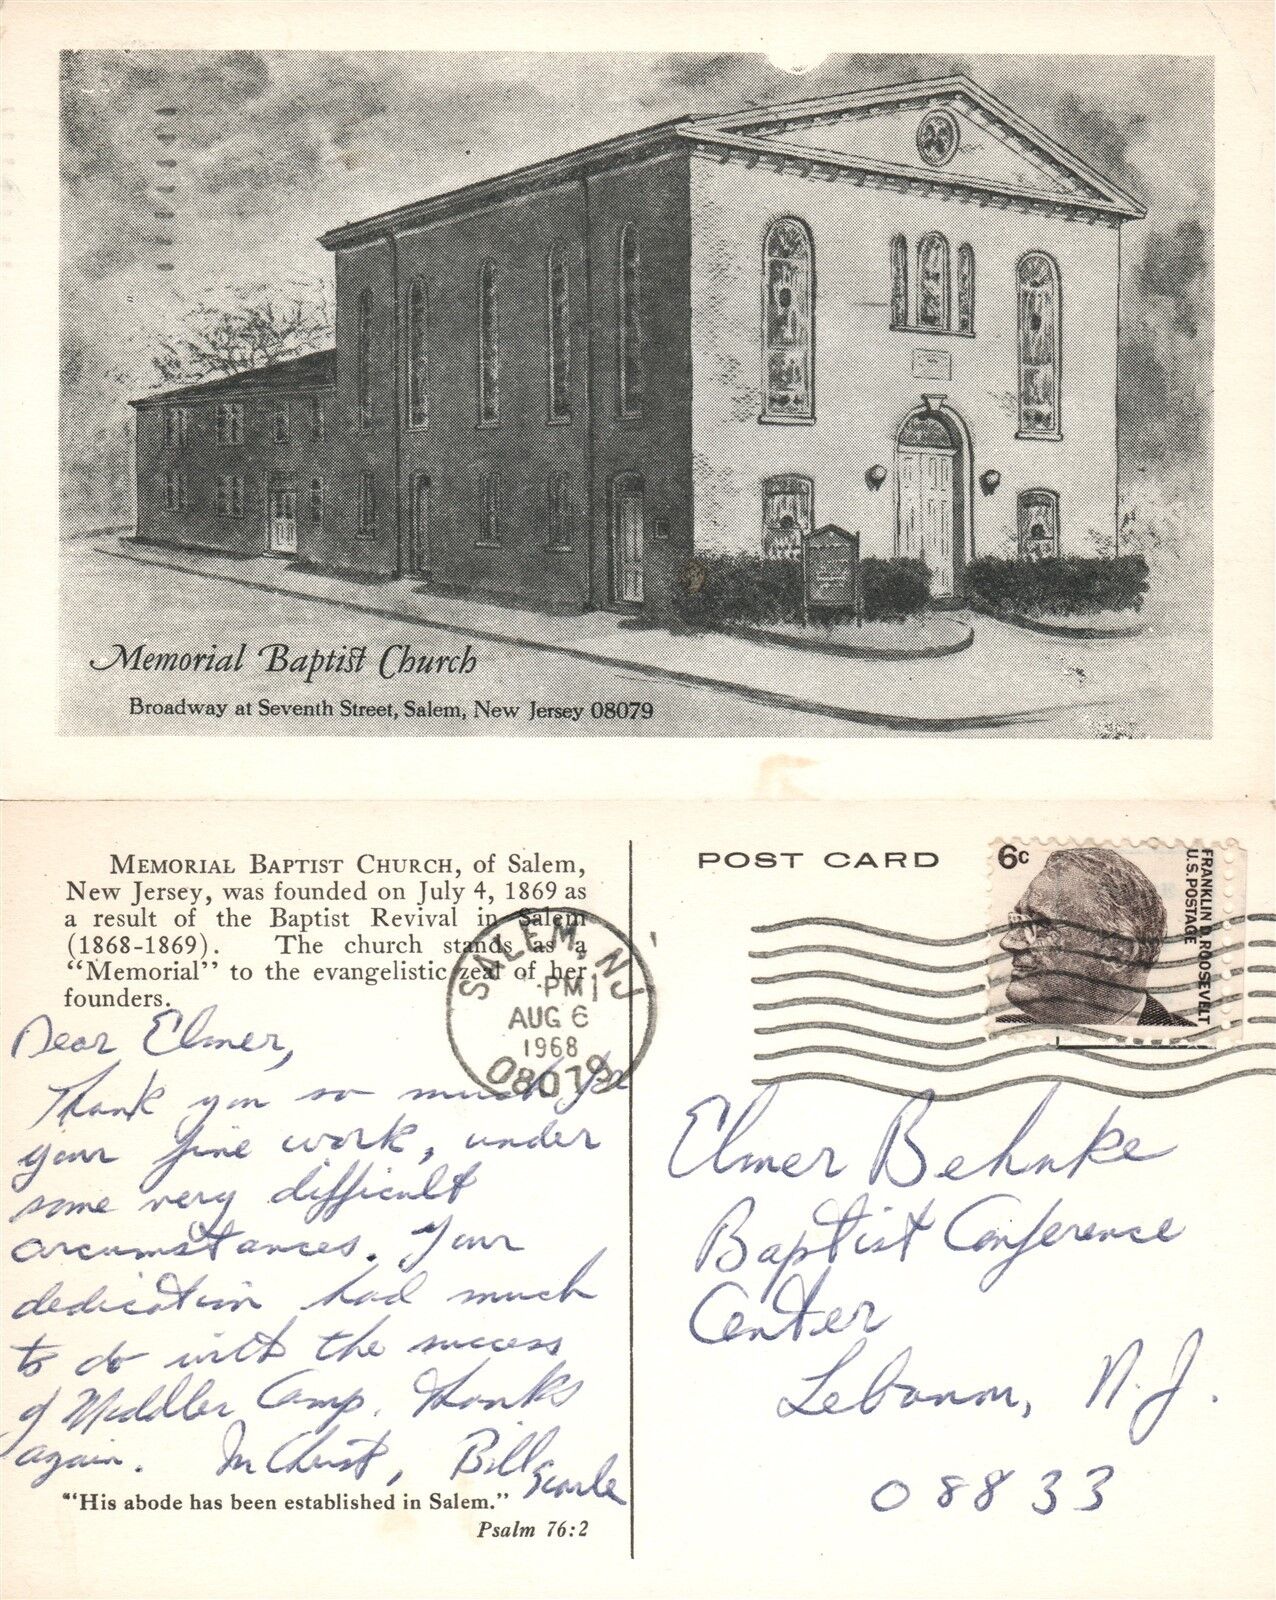 Memorial Baptist Church
Broadway at Seventh Street, Salem, New Jersey 08079
MEMORIAL BAPTIST CHURCH, of Salem,
New Jersey, was founded on July 4, 1869 as
a result of the Baptist Revival in Salem
(1868-1869). The church stands as a
“Memorial” to the evangelistic zeal of her
founders.
Dear Elmer,
Thank you so much for
your fine work, under
some very difficult
circumstances. Your
dedication had much
to do with the success
of Middler Camp. Thanks
again. In Christ, Bill
Searle
“His abode has been established in Salem.”
Psalm 76:2
SALEM, NJ
PM
AUG 6
1968
08079
POST CARD
6c
FRANKLIN D. ROOSEVELT
U.S. POSTAGE
Elmer Behnke
Baptist Conference
Center
Lebanon, N.J.
08833